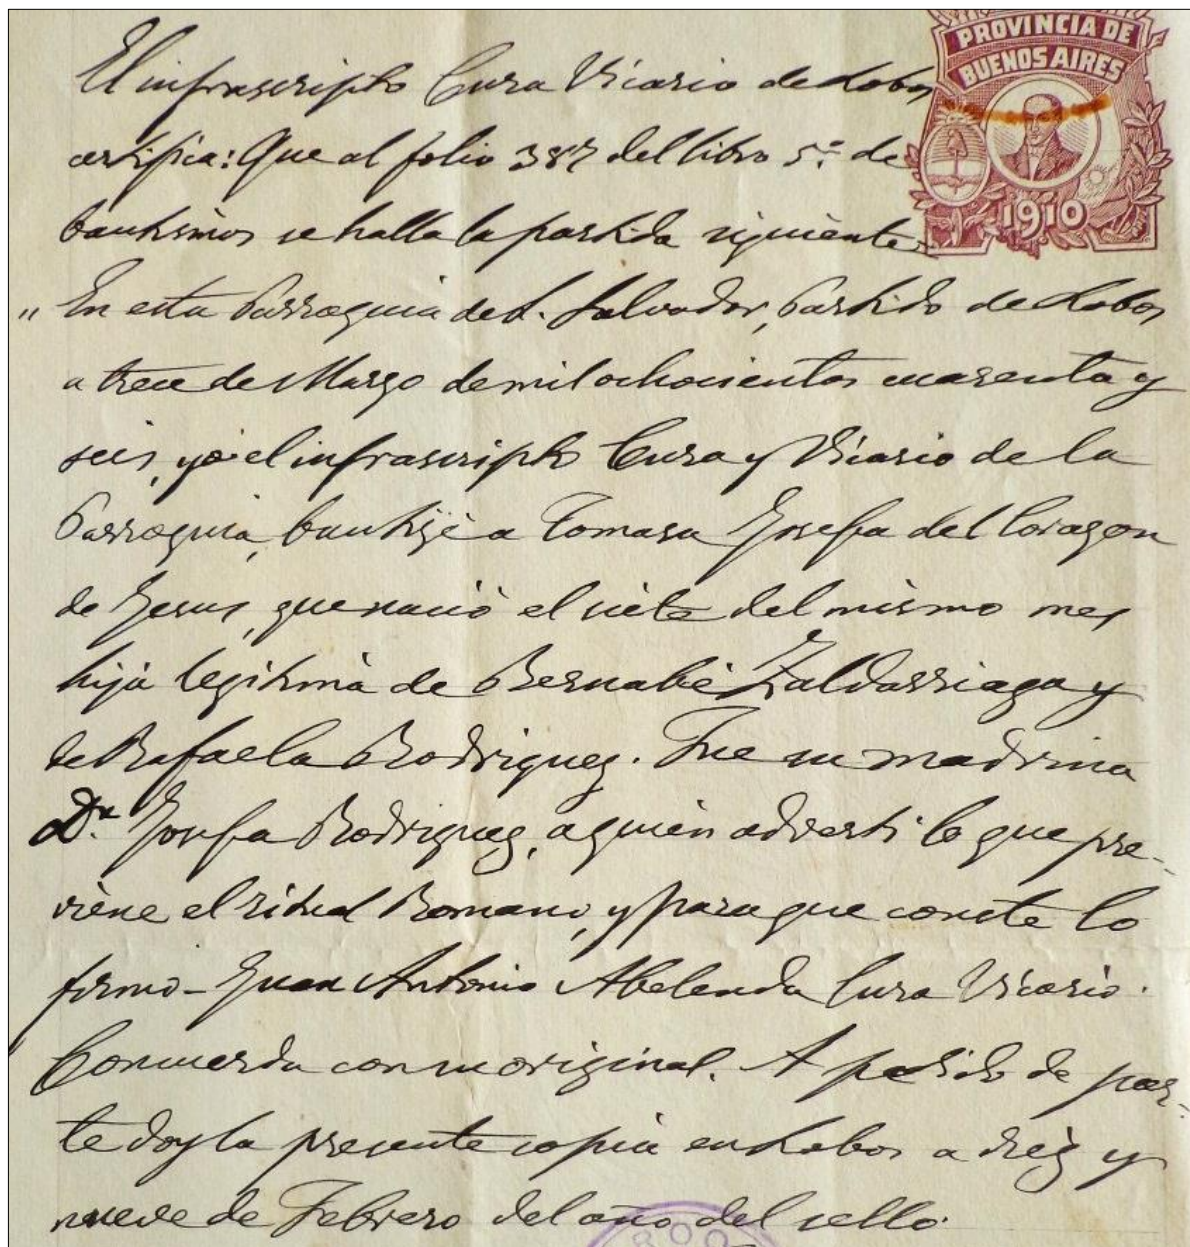 PROVINCIA DE
BUENOS AIRES
1910
El infrascripto Cura Vicario de Lobos
certifica: Que al folio 387 del libro 5º de
bautismos se halla la partida siguiente
" En esta Parroquia de S. Salvador, Partido de Lobos
a trece de Marzo de mil ochocientos cuarenta y
seis, yo el infrascripto Cura y Vicario de la
Parroquia, bauticé a Tomasa Josefa del Corazon
de Jesus, que nació el siete del mismo mes
hija legitima de Bernabé Zaldarriaga y
de Rafaela Rodriguez. Fue su madrina
Dª Josefa Rodriguez, a quien adverti lo que pre-
viene el ritual Romano, y para que conste lo
firmo - Juan Antonio Abelenda Cura Vicario.
Concuerda con su original. A pedido de par-
te doy la presente copia en Lobos a diez y
nueve de Febrero del año del sello.